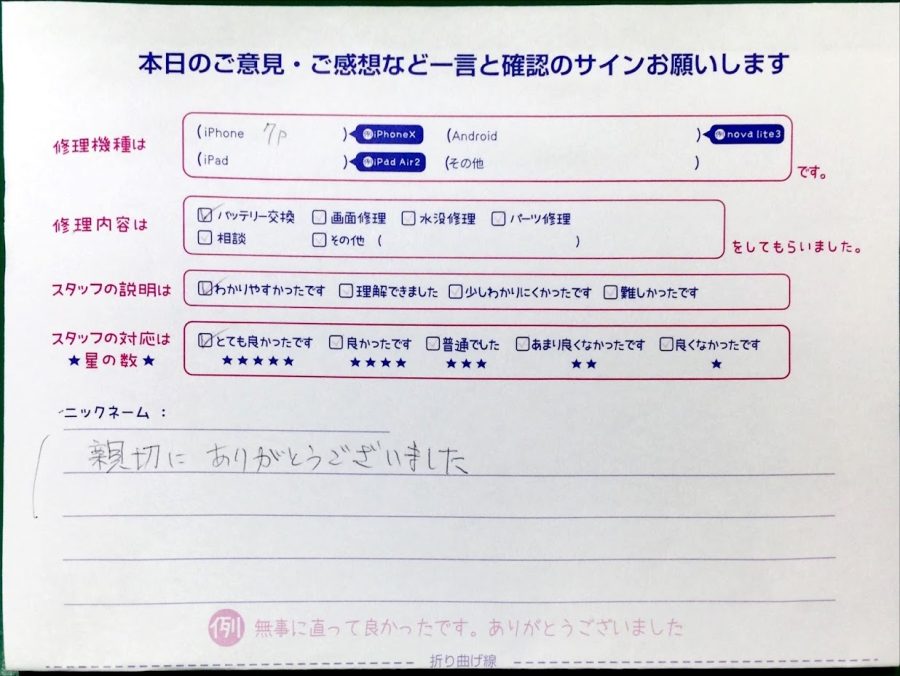 本日のご意見・ご感想など一言と確認のサインお願いします
修理機種は
(iPhone 7p ) 例iPhoneX (Android ) 例nova lite3
(iPad ) 例iPad Air2 (その他 )
です。
修理内容は
バッテリー交換 画面修理 水没修理 パーツ修理
相談 その他 ( )
をしてもらいました。
スタッフの説明は わかりやすかったです 理解できました 少しわかりにくかったです 難しかったです
スタッフの対応は とても良かったです 良かったです 普通でした あまり良くなかったです 良くなかったです
★星の数★ ★★★★★ ★★★★ ★★★ ★★ ★
ニックネーム :
親切に ありがとうございました
例 無事に直って良かったです。ありがとうございました
折り曲げ線